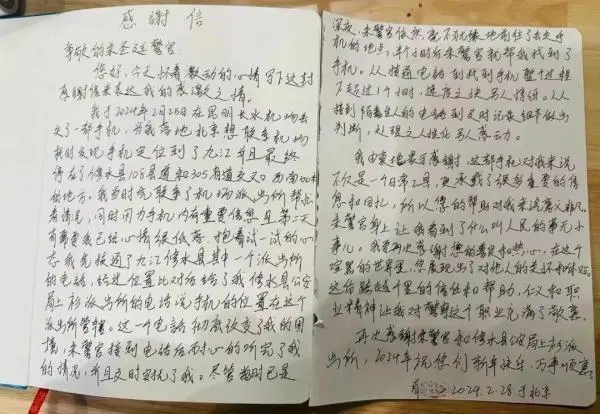 感谢信
尊敬的朱圣廷警官
您好,今天怀着激动的心情写下这封
感谢信来表达我的感激之情。
我于2024年2月25日在昆明长水机场丢
失了一部手机,当我落地北京想联手机场
找时发现手机定位到了九江并且最终
停在了修水县106县道和305省道交叉口西南
的地方。我当时先联系了机场派出所帮忙
看情况,同时因为手机内有重要信息且第二天
有需要我已经心情很低落。抱着试一试的心
态我先接通了九江修水县其中一个派出所
的电话,经过位置比对后给了我修水县公安
局上杉派出所的电话说手机的位置在这个
派出所管辖。这一个电话彻底改变了我的困
境,朱警官接到电话后耐心的听完了我
的情况,并且及时安抚了我。尽管当时已是
深夜,朱警官依然毫不犹豫地前往了丢失手
机的地点,半个小时后朱警官就帮我找到了
手机。从接通电话到找到手机整个过程
不超过1个小时,速度之快另人惊讶。从从
接到陌生人的电话到及时记录细节做出
判断,处理之人性化另人感动。
我由衷地表示感谢,这部手机对我来说
不仅是一个日常工具,更承载了很多重要的信
息和回忆,所以您的帮助对我来说意义非凡。
朱警官身上让我看到了什么叫人民的事无小
事儿。我要再次感谢您的善良和热心,在这个
喧嚣的世界里,您展现出了对他人的关怀和体贴。
这后跨越千里的信任和帮助,仁义和职
业精神让我对警察这个职业充满了敬意。
再次感谢朱警官和修水县公安局上杉派
出所,2024年祝您们新年快乐、万事顺意!
2024.2.28于北京